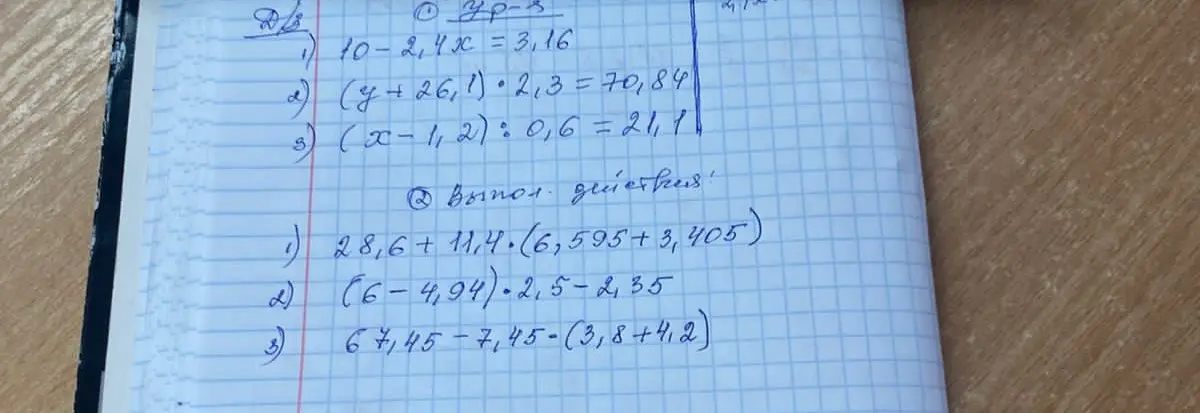 Д/з
① Ур-я
1) 10 - 2,4x = 3,16
2) (y + 26,1) · 2,3 = 70,84
3) (x - 1,2) : 0,6 = 21,1
② Выпол. действия:
1) 28,6 + 11,4 · (6,595 + 3,405)
2) (6 - 4,94) · 2,5 - 2,35
3) 67,45 - 7,45 · (3,8 + 4,2)